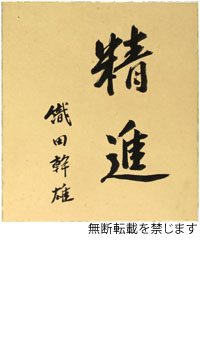 精進
織田幹雄
無断転載を禁じます